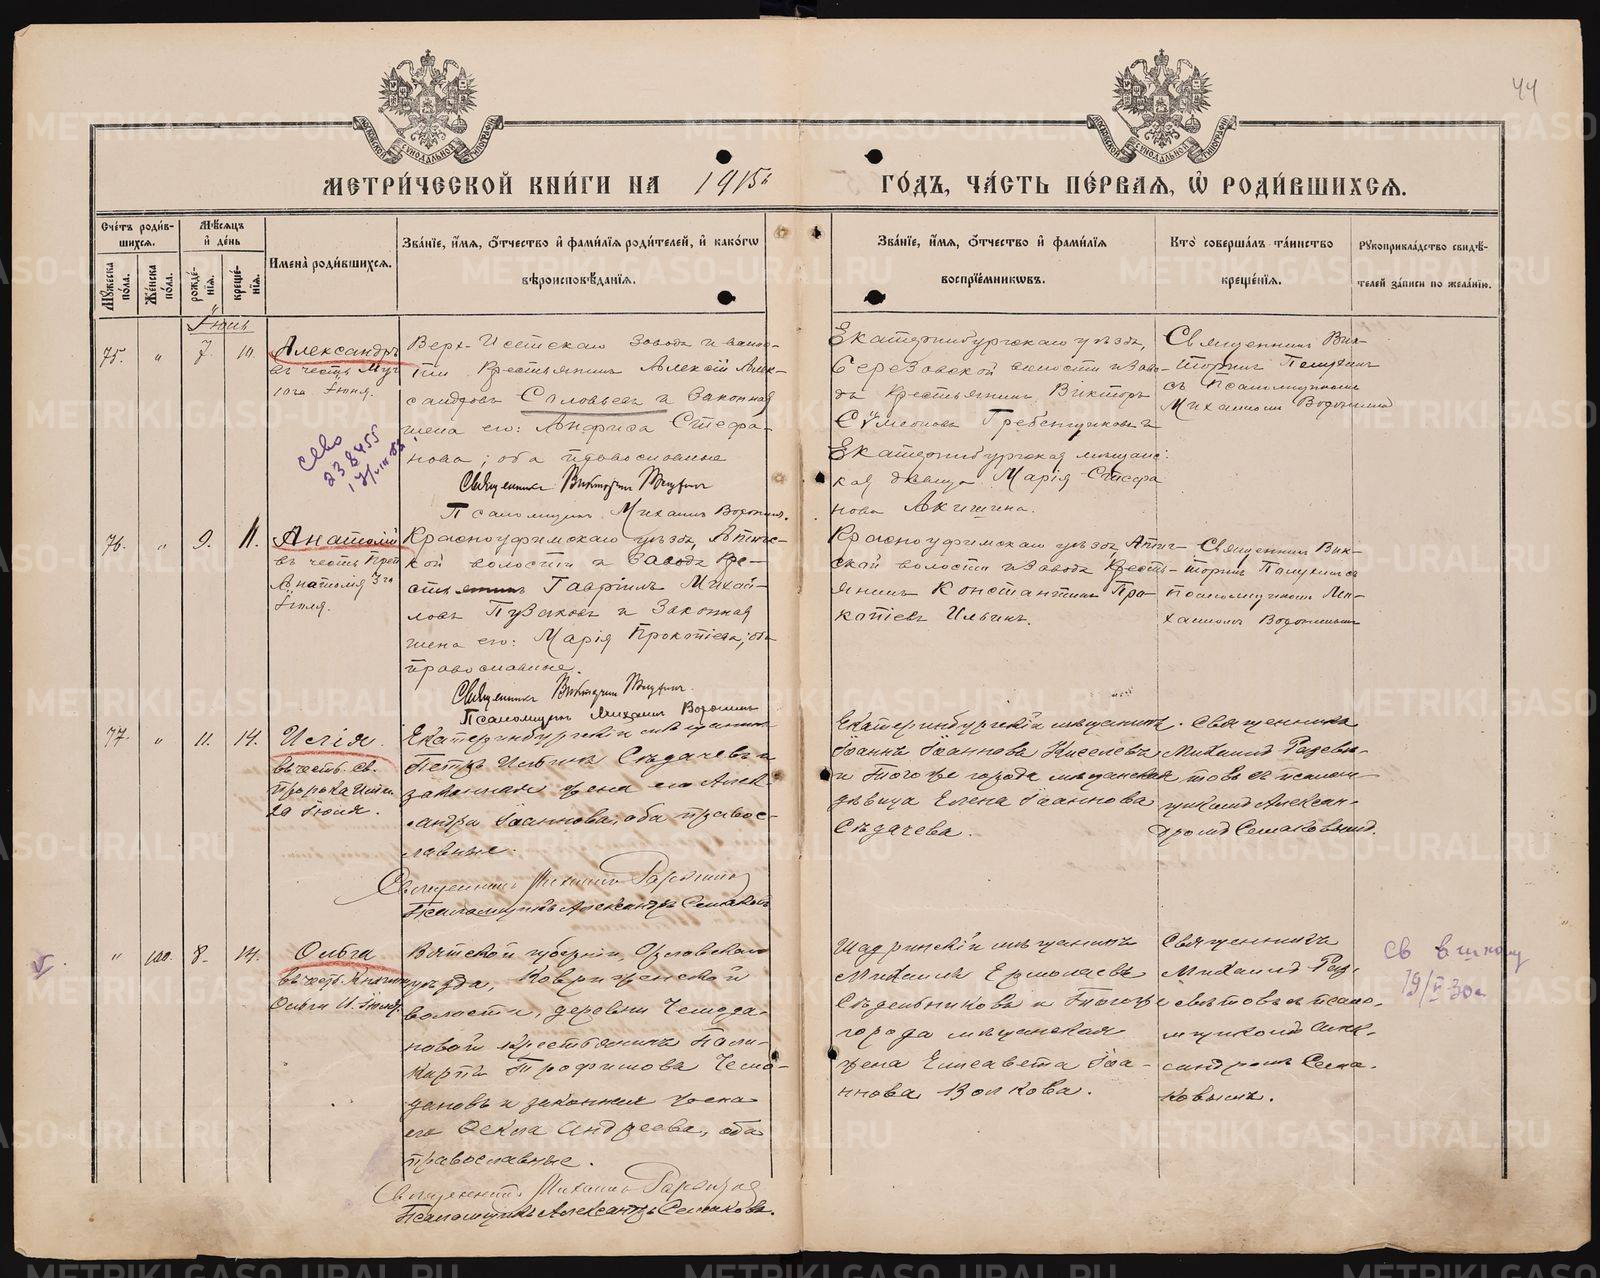 44
МЕТРИ́ЧЕСКОЙ КНИ́ГИ НА 1915й ГО́ДЪ, ЧА́СТЬ ПЕ́РВАЯ, Ѡ РОДИ́ВШИХСЯ.
Сче́тъ роди́в-
шихся.
Мѣ́сяцъ
и де́нь
Му́жеска по́ла.
Же́нска по́ла.
рожде́-
нія.
креще́-
нія.
Имена̀ роди́вшихся.
Зва́ніе, и́мя, ѻ́тчество и фами́лія роди́телей, и како́гѡ
вѣроисповѣ́данія.
Зва́ніе, и́мя, ѻ́тчество и фами́лія
воспрїе́мникѡвъ.
Кто̀ соверша́лъ та́инство
креще́нія.
Рукоприкла́дство свидѣ́-
телей за́писи по жела́нію.
Іюнь
75. " 7. 10.
Александръ
въ честь муч
10го Іюня.
Верх-Исетскаго завода и волос-
ти крестьянинъ Алексій Алек-
сандровъ Соловьевъ и законная
жена его: Анфиса Стефа-
нова; оба православные
Священникъ Викторъ
Псаломщикъ Михаилъ Воронинъ.
Екатеринбургскаго уѣзда,
Березовской волости и заво-
да крестьянинъ Викторъ
Сѵмеоновъ Гребенщиковъ и
Екатеринбургская мѣщанс-
кая дѣвица Марія Стефа
нова Акишина.
Священникъ Вик-
торъ
съ псаломщикомъ
Михаиломъ
238455
76. " 9. 11.
Анатолій
въ честь Преп
Анатолія 3го
Іюля.
Красноуфимскаго уѣзда, Атигс-
кой волости и завода кре-
стьянинъ Гавріилъ Михай-
ловъ Пузаковъ и законная
жена его: Марія Прокопіева; оба
православные.
Священникъ Викторъ
Псаломщикъ Михаилъ Воронинъ
Красноуфимскаго уѣзда, Атиг-
ской волости и завода кресть-
янинъ Константинъ Про-
копіевъ Ильинъ.
Священникъ Вик-
торъ
псаломщикомъ Ми-
хаиломъ
77 " 11. 14.
Илія.
въ честь св.
пророка Иліи
20 Іюля.
Екатеринбургскій мѣщанинъ
Петръ Ильинъ Сѣдачевъ и
законная жена его Алек
сандра Іоаннова, оба правос-
лавные.
Священникъ Михаилъ
Псаломщикъ Александръ Семаковъ
Екатеринбургскій мѣщанинъ
Іоаннъ Іоанновъ Киселевъ
и того же города мѣщанская
дѣвица Елена Іоаннова
Сѣдачева.
Священникъ
Михаилъ
товъ съ псалом-
щикомъ Алексан-
дромъ Семаковымъ.
" 100. 8. 14.
Ольга
въ честь Княгини
Ольги 11. Іюля.
Вятской губерніи, Орловскаго
уѣзда,
волости, деревни Чемода-
новой крестьянинъ Поли-
карпъ Трофимовъ Чемо-
дановъ и законная жена
его Фекла Андреева, оба
православные.
Священникъ Михаилъ
Псаломщикъ Александръ Семаковъ.
Шадринскій мѣщанинъ
Михаилъ Ермолаевъ
Сѣдельниковъ и того же
города мѣщанская
жена Елисавета Іоа-
ннова Волкова.
Священникъ
Михаилъ
съ псало-
мщикомъ Алек-
сандромъ Сема-
ковымъ.
Св в школу
19/V 30г
METRIKI.GASO-URAL.RU